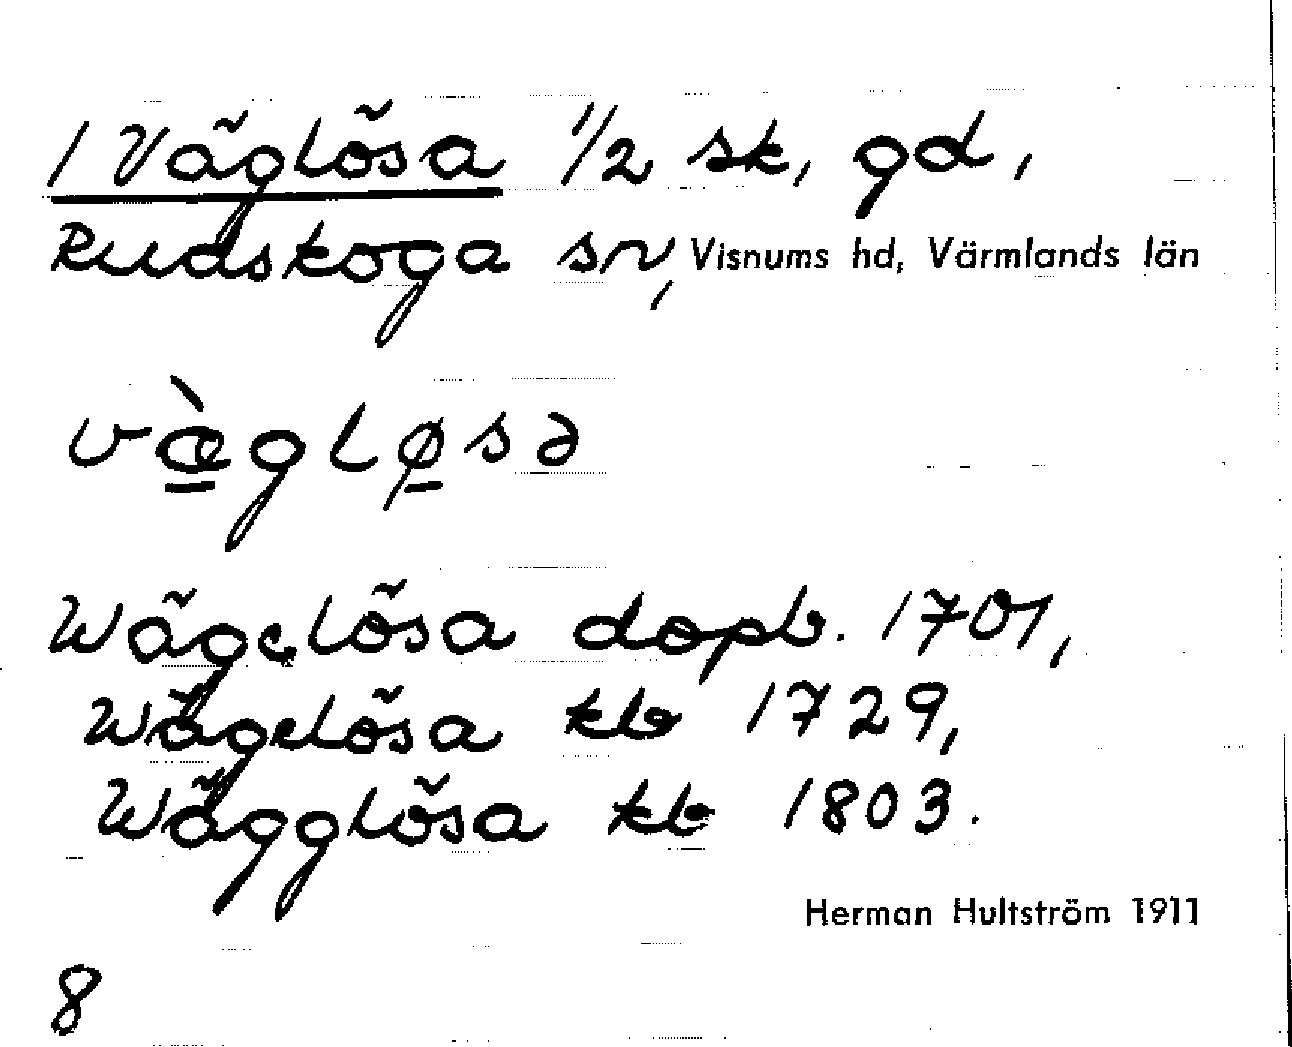 1 Väglösa 1/2 sk, gd,
Rudskoga sn, Visnums hd, Värmlands län
væ̀gløsə
Wägelösa dopb. 1701,
Wägelösa kb 1729,
Wägglösa kb 1803.
Herman Hultström 1911
8